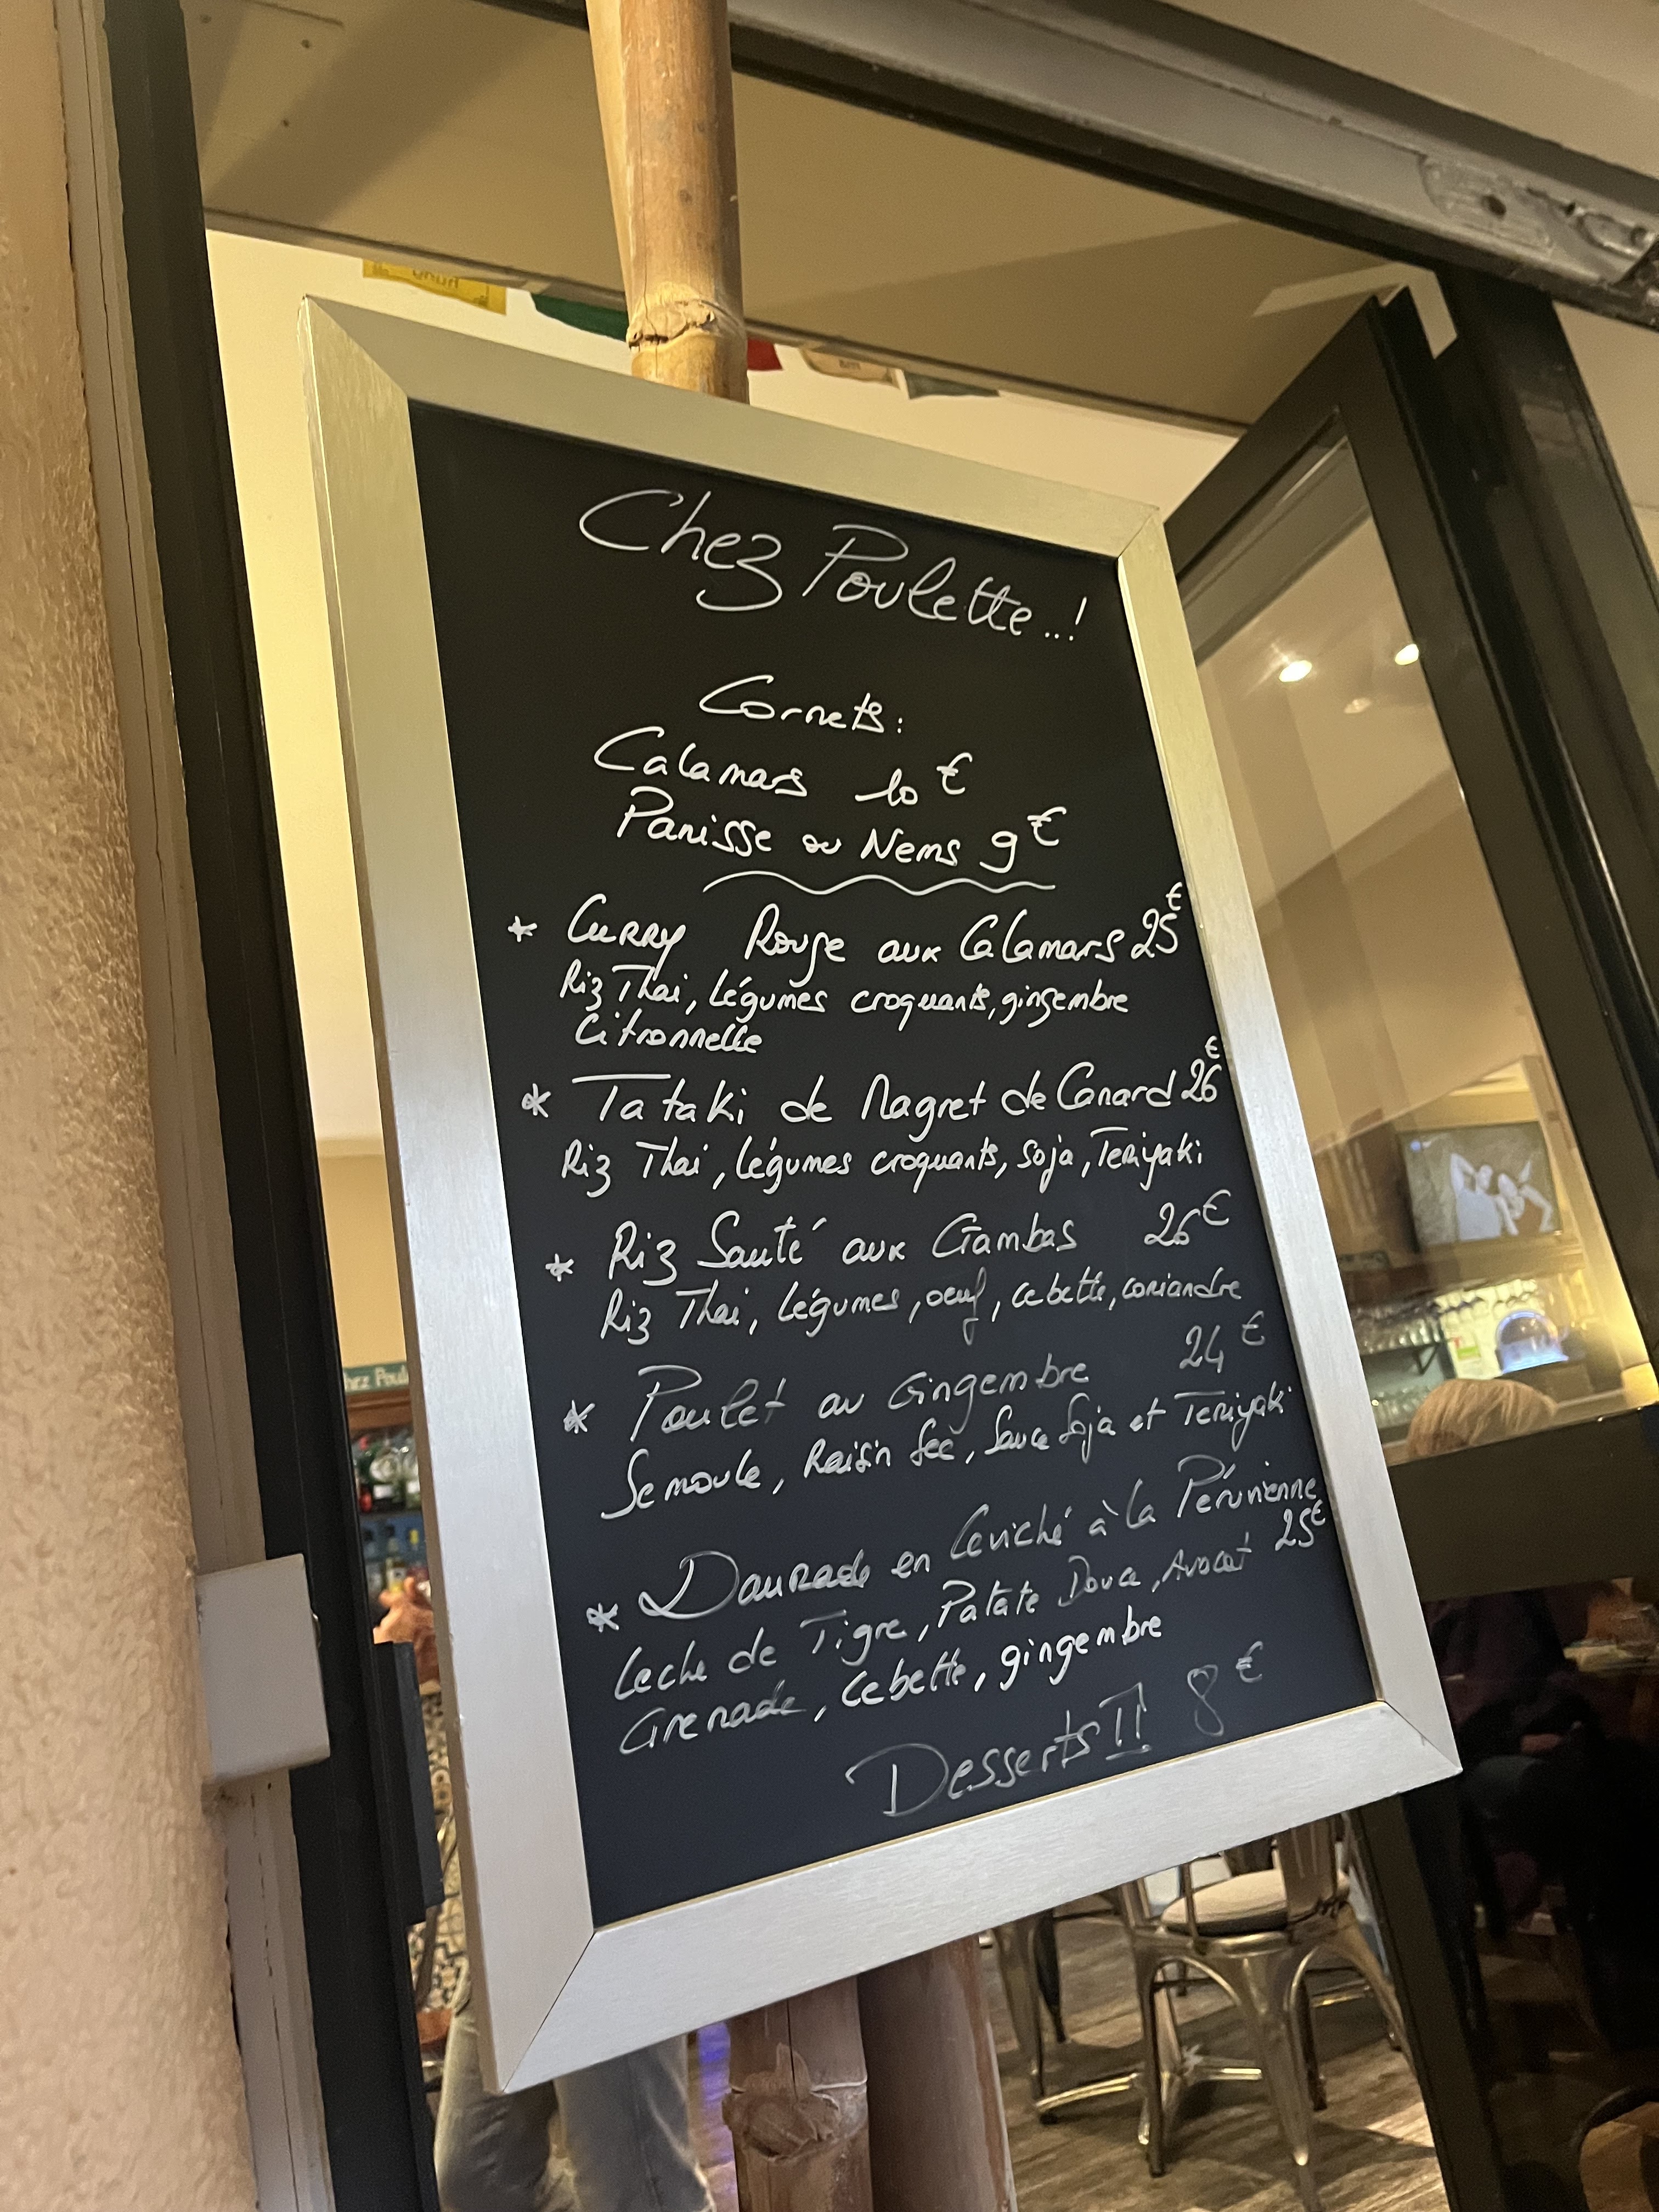 Chez Poulette..!
Cornets:
Calamars 10€
Panisse ou Nems 9€
* Curry Rouge aux Calamars 25€
Riz Thai, Légumes croquants, gingembre
Citronnelle
* Tataki de Magret de Canard 26€
Riz Thai, Légumes croquants, Soja, Teriyaki
* Riz Sauté aux Gambas 26€
Riz Thai, Légumes, oeuf, cebette, coriandre
* Poulet au Gingembre 24€
Semoule, Raisin Sec, Sauce Soja et Teriyaki
* Daurade en Ceviché à la Péruvienne
Leche de Tigre, Patate Douce, Avocat 25€
Grenade, Cebette, gingembre
Desserts II 8€
hez Poul